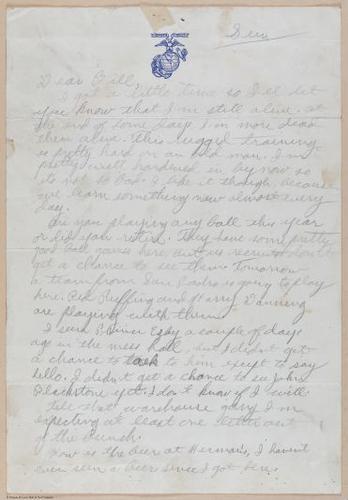 Sun
Dear Bill,
I got a little time so I'll let
you know that I'm still alive. at
the end of some days I'm more dead
then alive. This rugged training
is pretty hard on an old man. I'm
pretty well hardened in by now so
its not so bad. I like it though, because
you learn something new almost every
day.
Are you playing any ball this year
or did you retire. They have some pretty
good ball games here but us recruits don't
get a chance to see them. Tomorrow
a team from San Pedro is going to play
here. Red Ruffing and Harry Danning
are playing with them.
I seen Prince a couple of days
ago in the mess hall, but I didn't get
a chance to talk to him except to say
hello. I didn't get a chance to see John
Blackstone yet. I don't know if I will.
Tell that warehouse gang I'm
expecting at least one letter out
of the bunch.
How is the beer at Herman's, I haven't
even seen a beer since I got here.